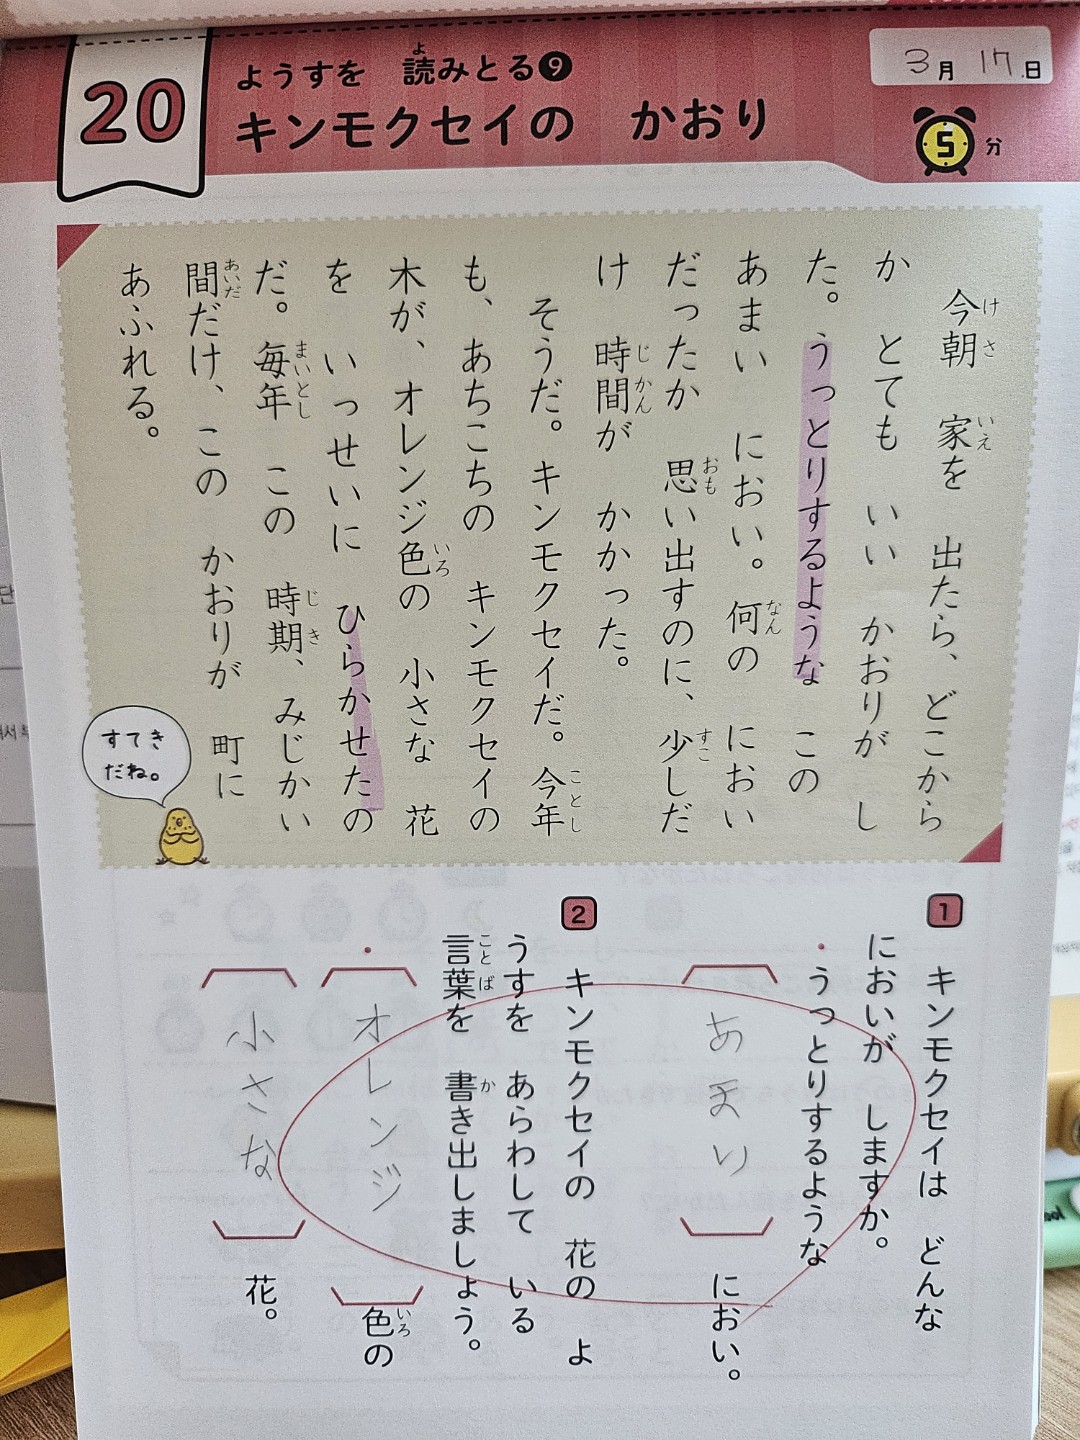 20
ようすを 読みとる❾
キンモクセイの かおり
3月 17日
5分
今朝 家を 出たら、どこから
か とても いい かおりが し
た。うっとりするような この
あまい におい。何の におい
だったか 思い出すのに、少しだ
け 時間が かかった。
そうだ。キンモクセイだ。今年
も、あちこちの キンモクセイの
木が、オレンジ色の 小さな 花
を いっせいに ひらかせたの
だ。毎年 この 時期、みじかい
間だけ、この かおりが 町に
あふれる。
すてき
だね。
1
キンモクセイは どんな
においが しますか。
・うっとりするような
あまい におい。
2
キンモクセイの 花の よ
うすを あらわして いる
言葉を 書き出しましょう。
・オレンジ 色の
小さな 花。